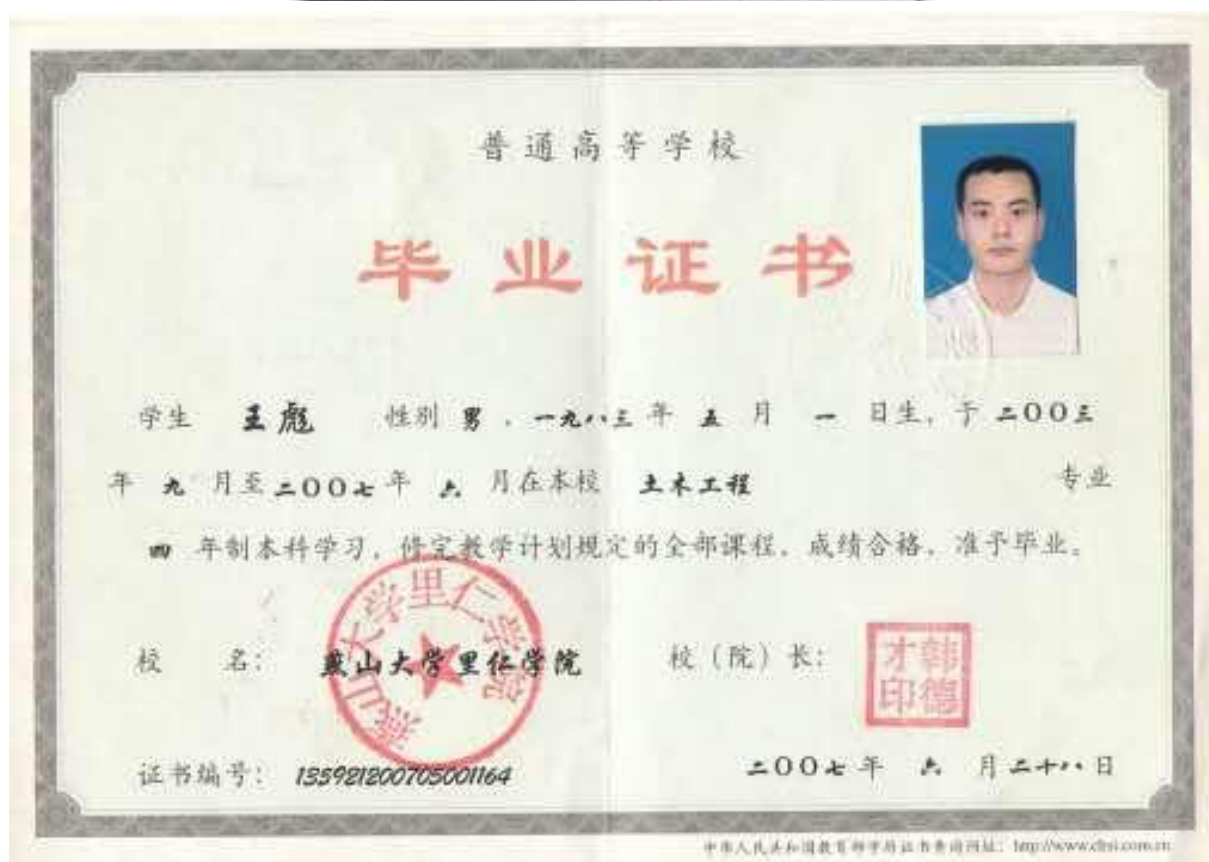 普通高等学校
毕业证书
学生 王彪 性别 男，一九八三年 五 月 一 日生，于二〇〇三
年 九 月至二〇〇七年 六 月在本校 土木工程 专业
四 年制本科学习，修完教学计划规定的全部课程，成绩合格，准予毕业。
校 名： 燕山大学里仁学院 校（院）长：
燕山大学里仁学院
韩德才印
证书编号： 135921200705001164 二〇〇七年 六 月二十八日
中华人民共和国教育部学历证书查询网址：http://www.chsi.com.cn